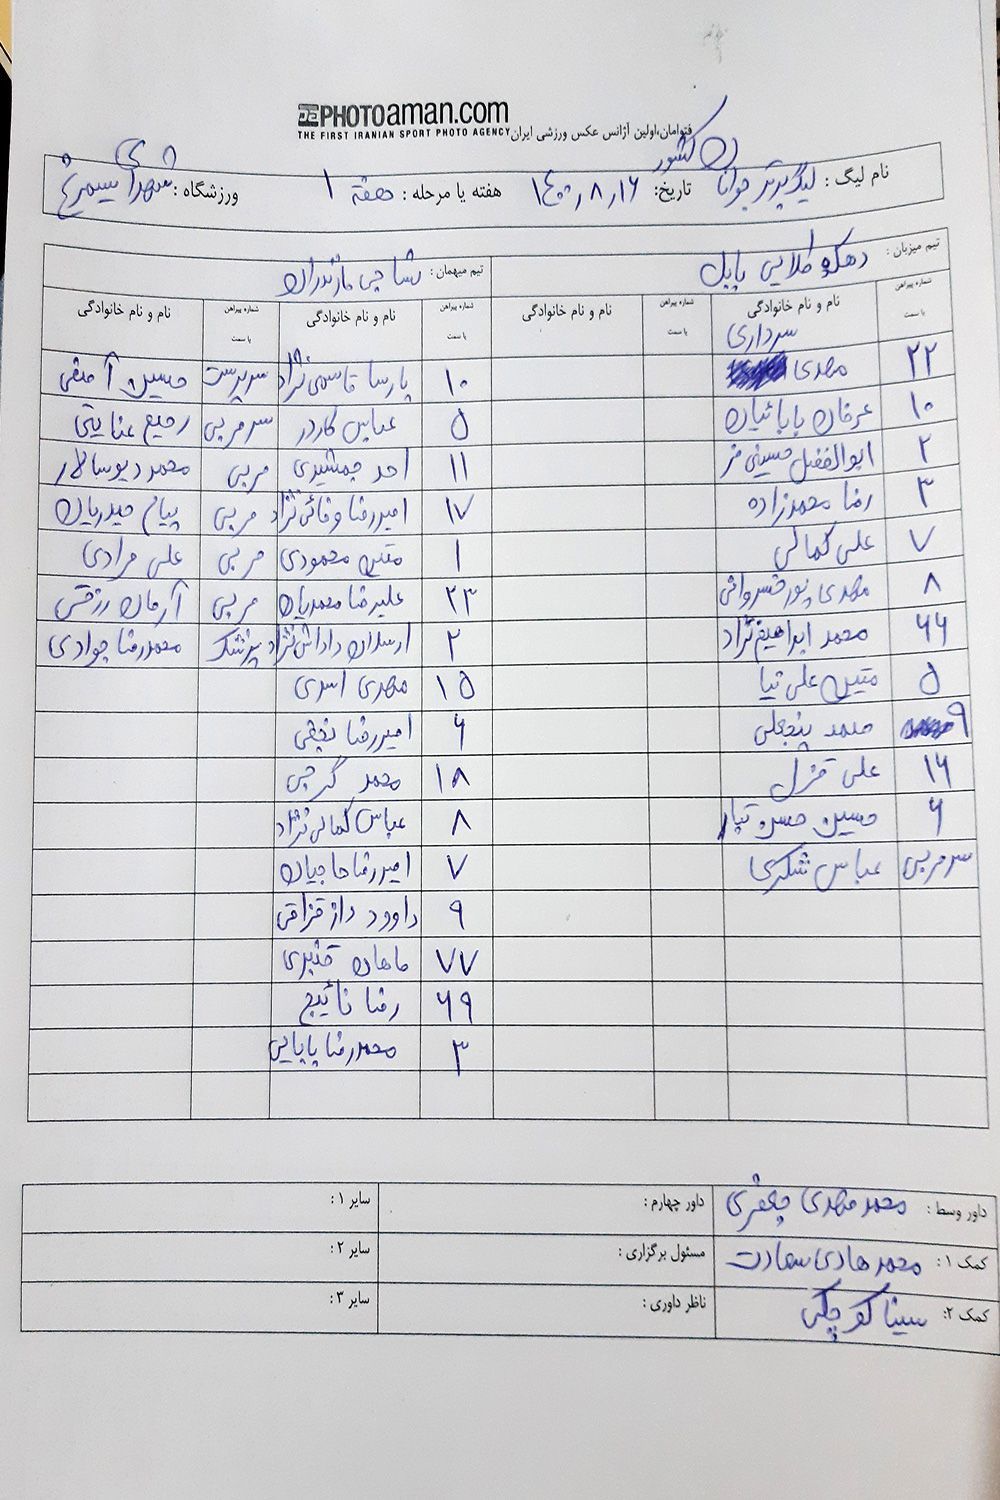 PHOTOaman.com
THE FIRST IRANIAN SPORT PHOTO AGENCY فتوامان،اولین آژانس عکس ورزشی ایران
نام لیگ : لیگ برتر جوانان کشور تاریخ: ۱۴۰۰٫۸٫۱۶ هفته یا مرحله : هفته ۱ ورزشگاه : شهدای سیمرغ
تیم میزبان : دهکده طلایی بابل تیم میهمان : نساجی مازندران
شماره پیراهن یا سمت نام و نام خانوادگی شماره پیراهن یا سمت نام و نام خانوادگی شماره پیراهن یا سمت نام و نام خانوادگی شماره پیراهن یا سمت نام و نام خانوادگی
۲۲ مهدی سرداری ۱۰ پارسا قاسمی نژاد سرپرست حسین
۱۰ عرفان بابائیان ۵ عباس کاردر سرمربی رحیم عنایتی
۲ ابوالفضل حسینی فر ۱۱ احد جمشیدی مربی محمد دیوسالار
۳ رضا محمدزاده ۱۷ امیررضا وفائی نژاد مربی پیام حیدریان
۷ علی کمالی ۱ متین محمودی مربی علی مرادی
۸ مهدی پورخسروانی ۲۳ علیرضا محمدیان مربی آرمان
۶۶ محمد ابراهیم نژاد ۲ ارسلان داداش نژاد پزشک محمدرضا جوادی
۵ متین علی نیا ۱۵ مهدی اسدی
۹ محمد پنجعلی ۶ امیررضا نجفی
۱۶ علی قزل ۱۸ محمد گرجی
۶ حسین حسن تبار ۸ عباس کمالی نژاد
سرمربی عباس شکری ۷ امیررضا حاجیان
۹ داوود دازقزاقی
۷۷ ماهان قنبری
۶۹ رضا نائیج
۳ محمدرضا بابایی
داور وسط : محمد مهدی جعفری داور چهارم : سایر ۱ :
کمک ۱ : محمد هادی سعادت مسئول برگزاری : سایر ۲ :
کمک ۲: سینا کوچکی ناظر داوری : سایر ۳ :